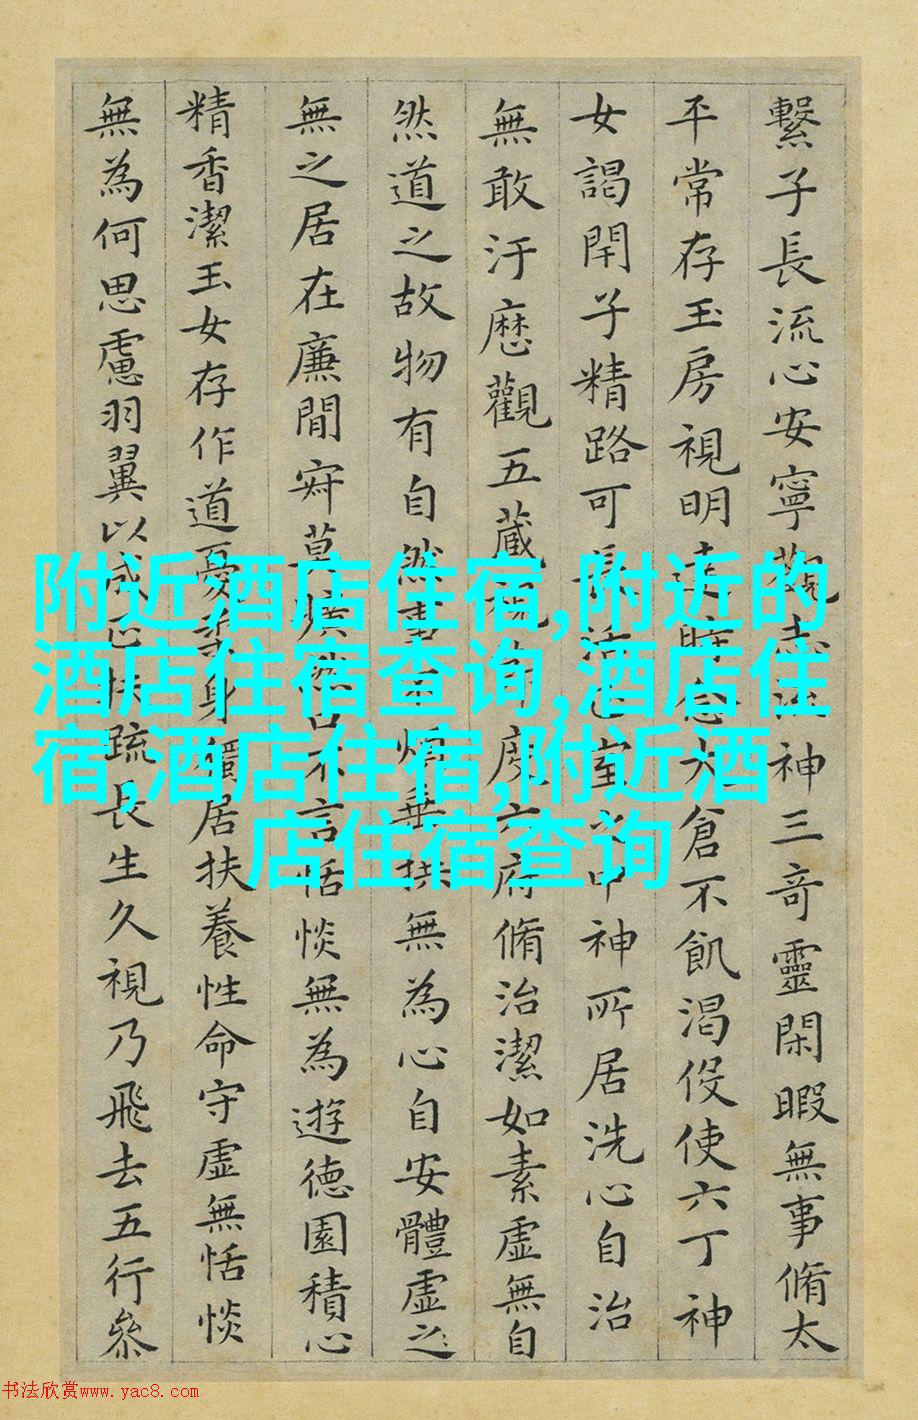 繫子長流心安寧觀志流神三奇靈閑暇無事脩太
平常存玉房視明達時念大倉不飢渴役使六丁神
女謁開子精路可長活正室之中神所居洗心自治
無敢汙歷觀五藏視節度六府脩治潔如素虛無自
然道之故物有自然事不煩垂拱無為心自安體虛之
無之居在廉間寂莫曠然口不言恬惔無為遊德園積心
精香潔玉女存作道憂柔身獨居扶養性命守虛無恬惔
無為何思慮羽翼以成正扶疏長生久視乃飛去五行參
附近酒店住宿,附近的
酒店住宿查询,酒店住
宿,酒店住宿,附近酒
店住宿查询
书法欣赏www.yac8.com